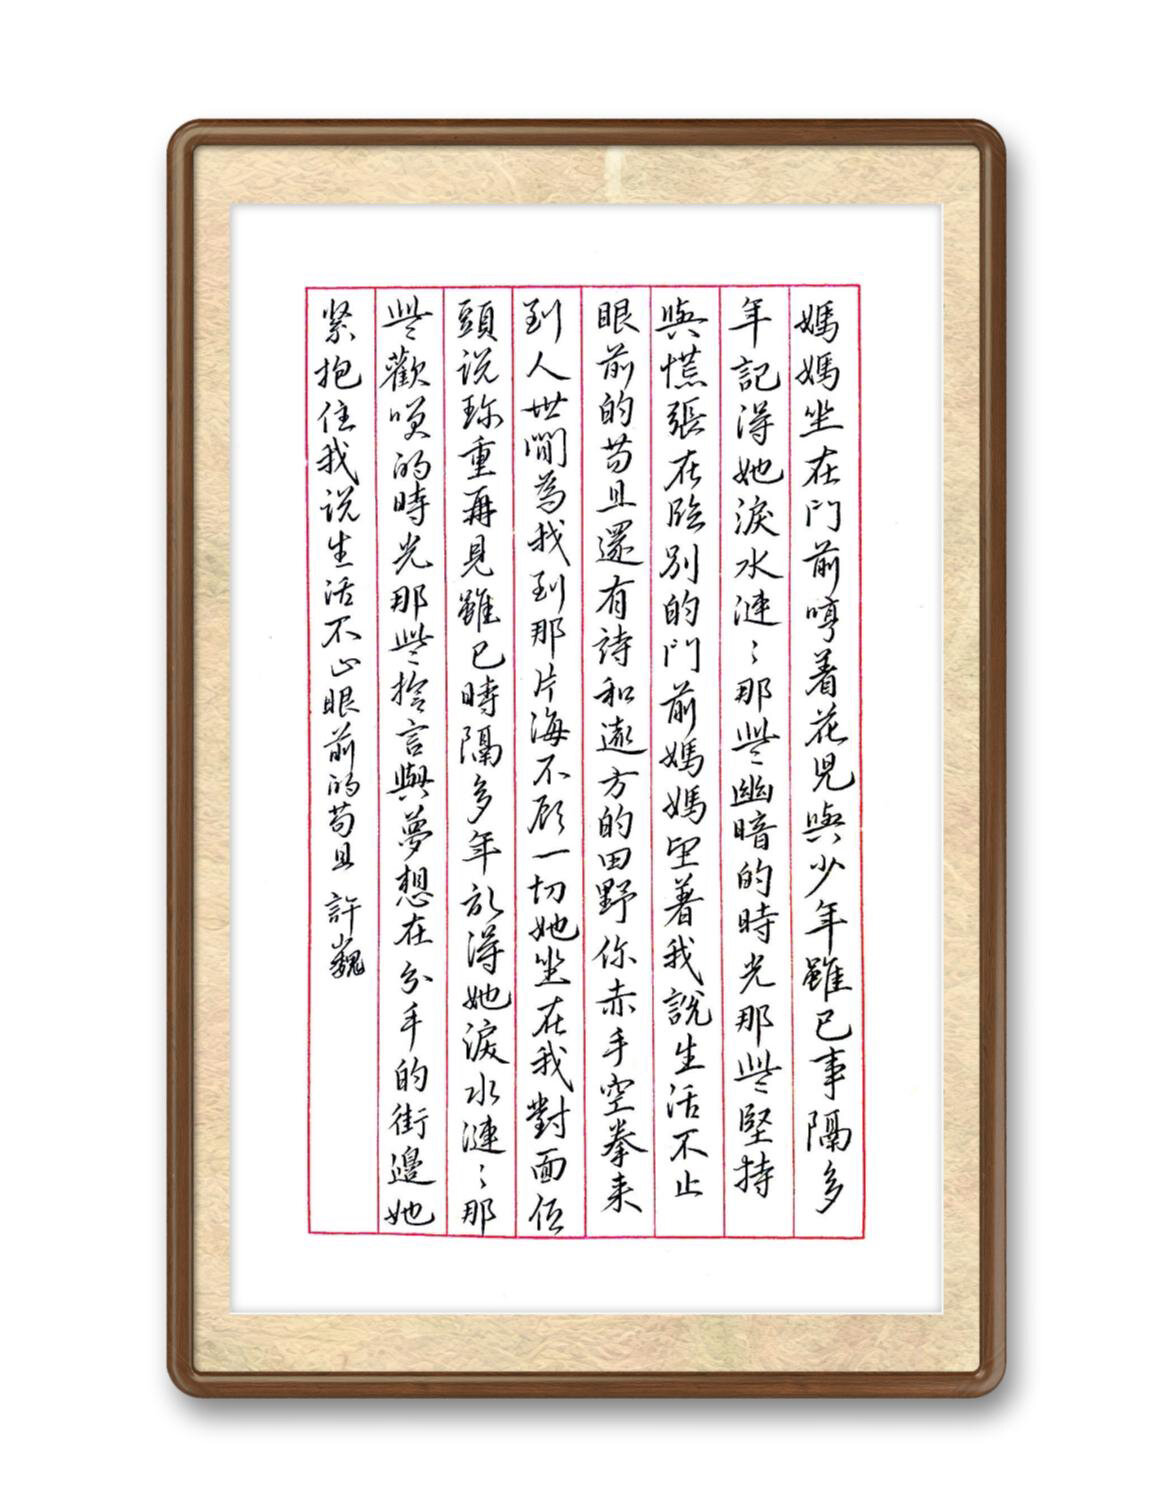 媽媽坐在門前哼着花兒與少年雖已事隔多
年記得她淚水漣〻那些幽暗的時光那些堅持
與慌張在臨別的門前媽媽望著我說生活不止
眼前的苟且還有詩和遠方的田野你赤手空拳来
到人世間為我到那片海不顾一切她坐在我對面低
頭说珎重再見雖已時隔多年記得她淚水漣〻那
些歡笑的時光那些捨言與夢想在分手的街邊她
紧抱住我说生活不止眼前的苟且 許巍